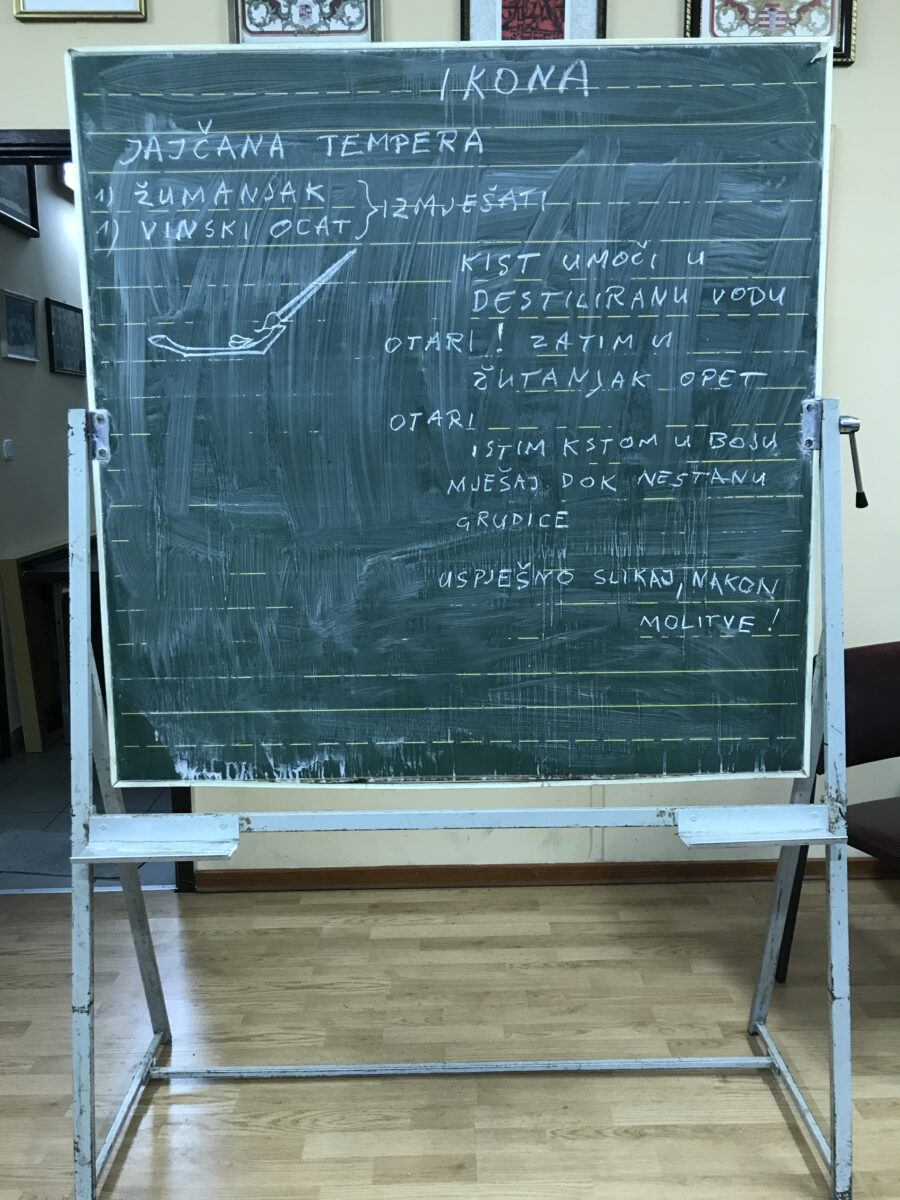 IKONA
JAJČANA TEMPERA
1) ŽUMANJAK
1) VINSKI OCAT } IZMJEŠATI
KIST UMOČI U
DESTILIRANU VODU
OTARI! ZATIM U
ŽUTANJAK OPET
OTARI
ISTIM KSTOM U BOJU
MJEŠAJ DOK NESTANU
GRUDICE
USPJEŠNO SLIKAJ, NAKON
MOLITVE!